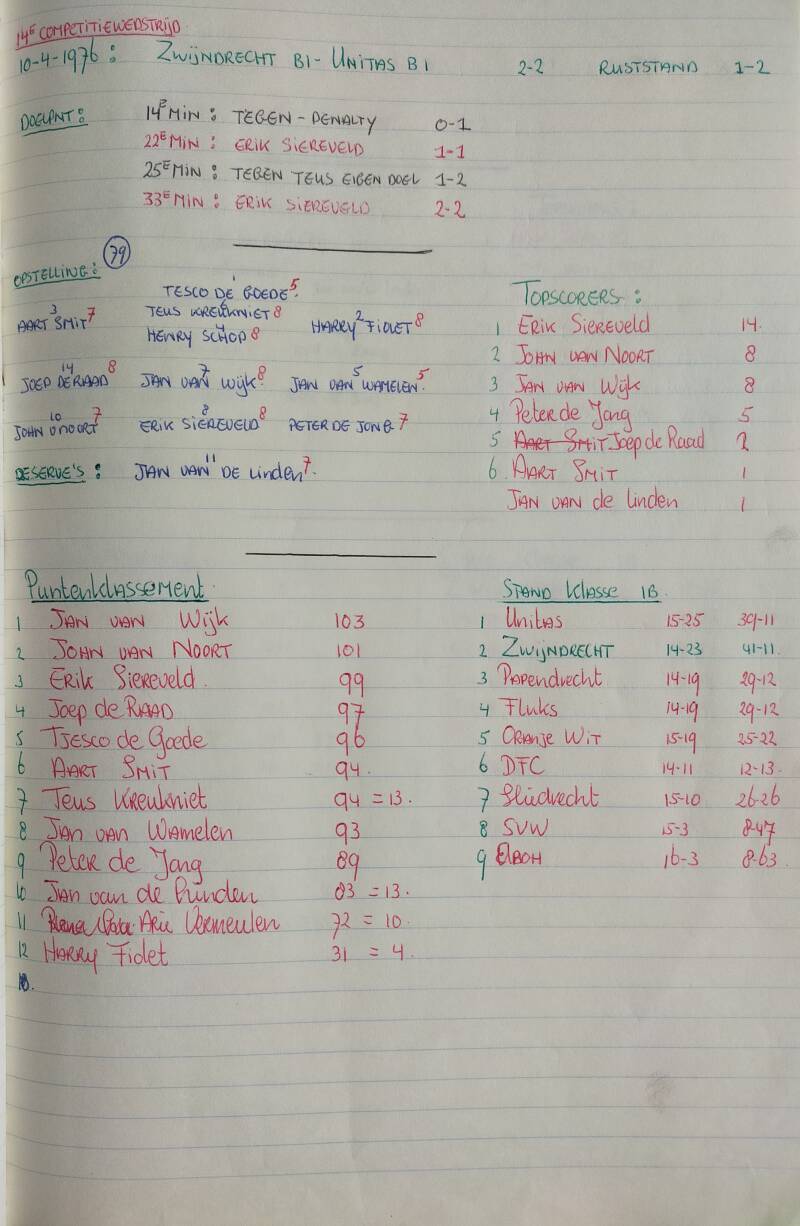 14E COMPETITIEWEDSTRIJD
10-4-1976: ZWIJNDRECHT B1 - UNITAS B1 2-2 RUSTSTAND 1-2
DOELPNT: 14E MIN: TEGEN - PENALTY 0-1
22E MIN: ERIK SIEREVELD 1-1
25E MIN: TEGEN TEUS EIGEN DOEL 1-2
33E MIN: ERIK SIEREVELD 2-2
OPSTELLING: 79
1
TESCO DE GOEDE 5.
3
AART SMIT 7 TEUS KREUKNIET 8
4 2
HENRY SCHOP 8 HARRY FIDLET 8
14 7 5
JOEP DE RAAD 8 JAN VAN WIJK 8. JAN VAN WAMELEN 5.
10 8
JOHN V NOORT 7 ERIK SIEREVELD 8 PETER DE JONG 7
11
RESERVE'S: JAN VAN DE LINDEN 7.
TOPSCORERS:
1 ERIK SIEREVELD 14.
2 JOHN VAN NOORT 8
3 JAN VAN WIJK 8
4 Peter de Jong 5
5 AART SMIT Joep de Raad 2
6 AART SMIT 1
JAN VAN de linden 1
Puntenklassement
1 JAN VAN WIJK 103
2 JOHN VAN NOORT 101
3 ERIK SIEREVELD. 99
4 Joep de RAAD 97
5 TJESCO de Goede 96
6 AART SMIT 94.
7 Teus Kreukniet 94 = 13.
8 JAN van Wamelen 93
9 Peter de Jong 89
10 JAN van de Linden 83 = 13.
11 Arie Vermeulen 72 = 10.
12 HARRY Fidet 31 = 4.
STAND Klasse 1B.
1 Unitas 15-25 39-11
2 ZWIJNDRECHT 14-23 41-11.
3 Papendrecht 14-19 29-12
4 Fluks 14-19 29-12
5 ORANJE WIT 15-19 25-22
6 DFC 14-11 12-13.
7 Sliedrecht 15-10 26-26
8 SVW 15-3 8-47
9 16-3 8-63.